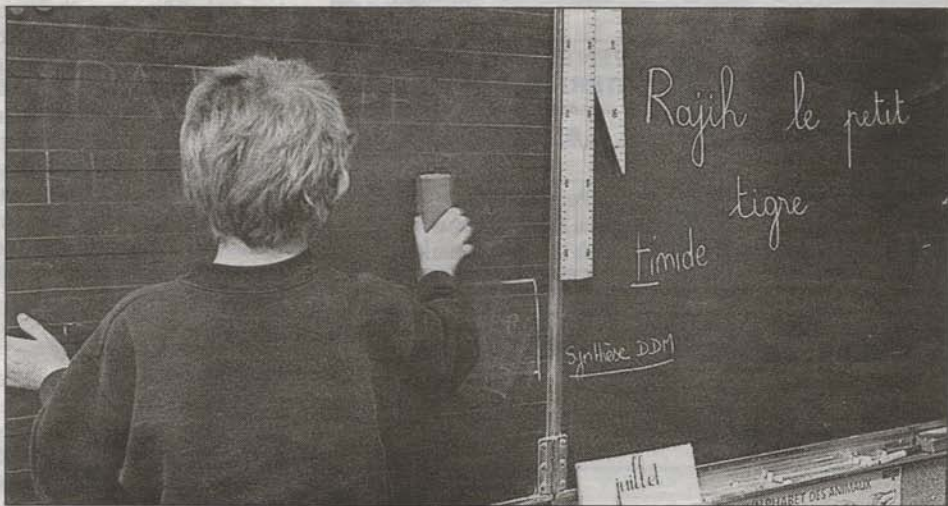 Rajih le petit
tigre
timide
Synthèse DDM
juillet
ALPHABET DES ANIMAUX